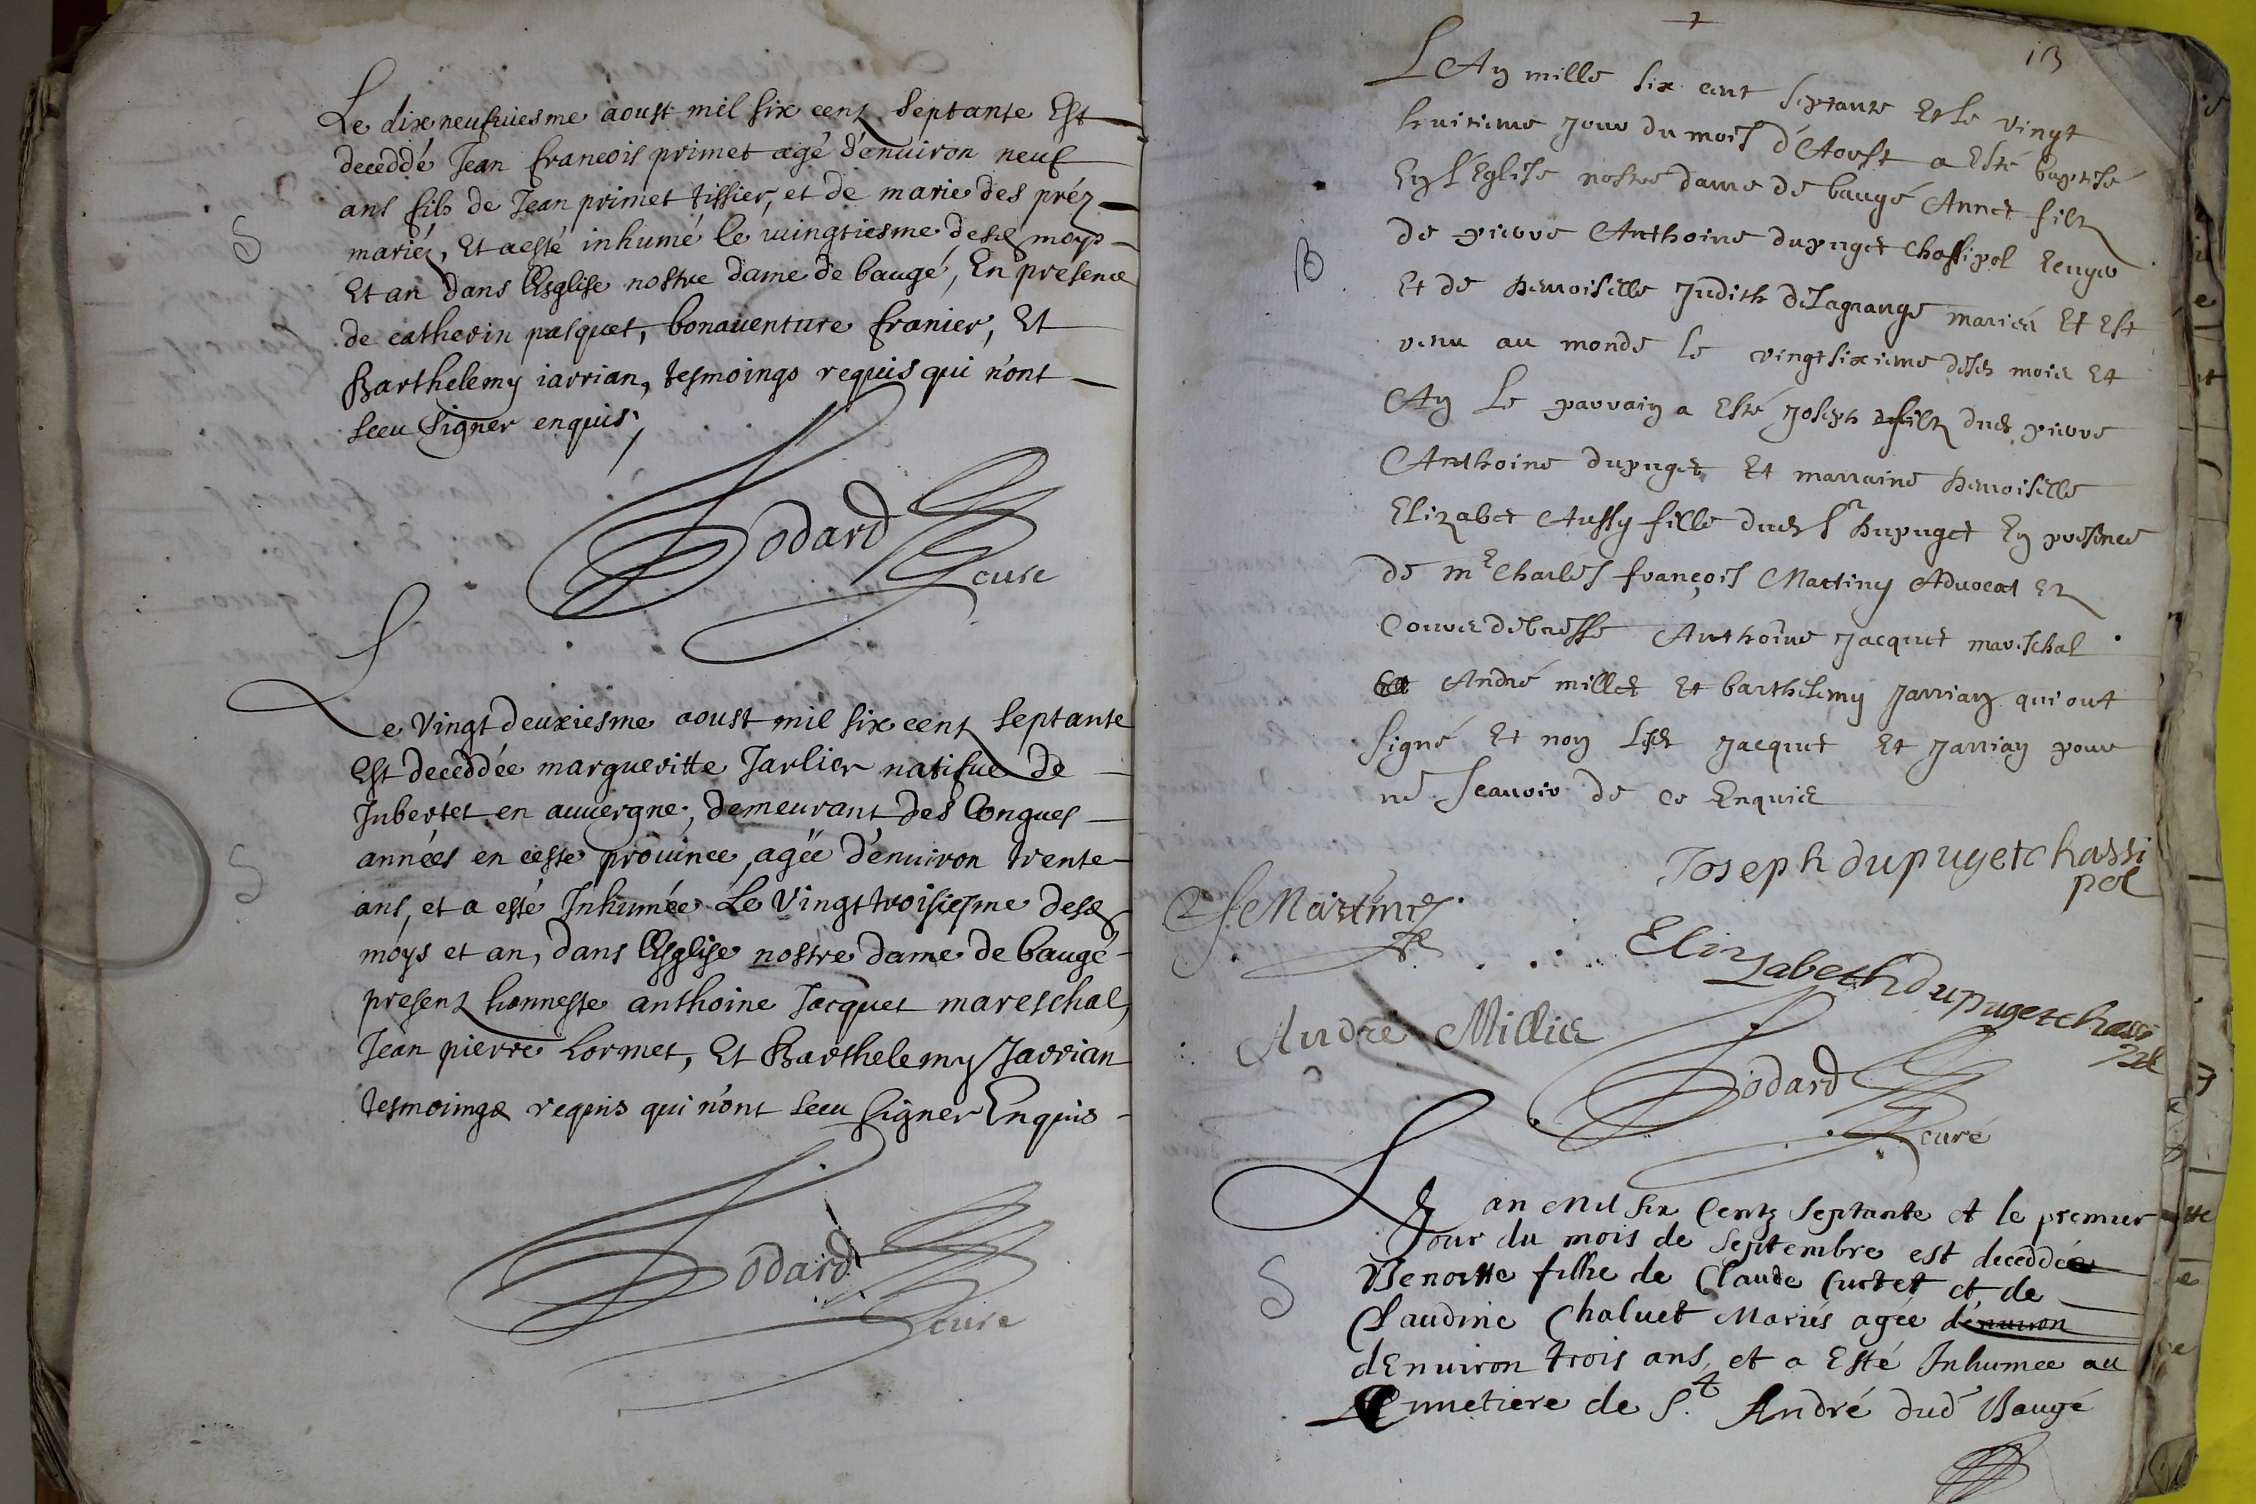 Le dixneufuiesme aoust mil six cent septante Est
deceddé Jean francois primet agé d'enuiron neuf
ans fils de Jean primet tissier, et de marie des préz
mariéz, Et a esté inhumé le vuingtiesme desd moys
Et an dans l'Esglise nostre dame de baugé, En presence
de catherin pasquet, bonauenture franier, Et
Barthelemy iarrian, tesmoings requis qui n'ont
sceu signer enquis,
S
Godard
cure
Le Vingtdeuxiesme aoust mil six cent septante
Est deceddée margueritte Jarlier natifue de
Jubertet en auuergne, demeurant des longues
années en ceste prouince, agée d'enuiron trente
ans, et a esté Inhumée Le Vingt troisiesme desd
moys et an, dans l'Esglise nostre dame de baugé
present honneste anthoine Jacquet mareschal,
Jean pierre Lormet, Et Barthelemy Jarrian
tesmoings requis qui n'ont sceu signer Enquis
S
Godard
cure
13
L'An mille six cent septante Et le vingt
huitieme jour du mois d'Aoust a Esté baptisé
En l'Eglise nostre dame de baugé Annet filz
de pierre Anthoine dupuget Chassipol Ecuyer
Et de Demoiselle Judith de Lagrange mariés Et Est
venu au monde le vingtsixieme desd mois Et
An Le parrain a Esté Joseph filz dud pierre
Anthoine dupuget Et marraine Demoiselle
Elizabet Aussy fille dud Sr Dupuget En presence
de Me Charles françois Martiny Aduocat En
de bresse Anthoine Jacquet mareschal
André millet Et barthelemy Jarrian qui ont
signé Et non Lesd Jacquet Et Jarrian pour
ne scauoir de ce Enquis
B
Joseph dupuget chassi
pol
Martiny
Elizabeth dupuget chassi
pol
André Millie
Godard
curé
L an Mil six Centz septante et le premier
Jour du mois de septembre est deceddée
Benoitte fillie de Claude Curtet et de
Claudine Chaluet Mariés agée d'enuiron
d'Enuiron trois ans, et a Esté Inhumee au
Cimetiere de St André dud Baugé
S